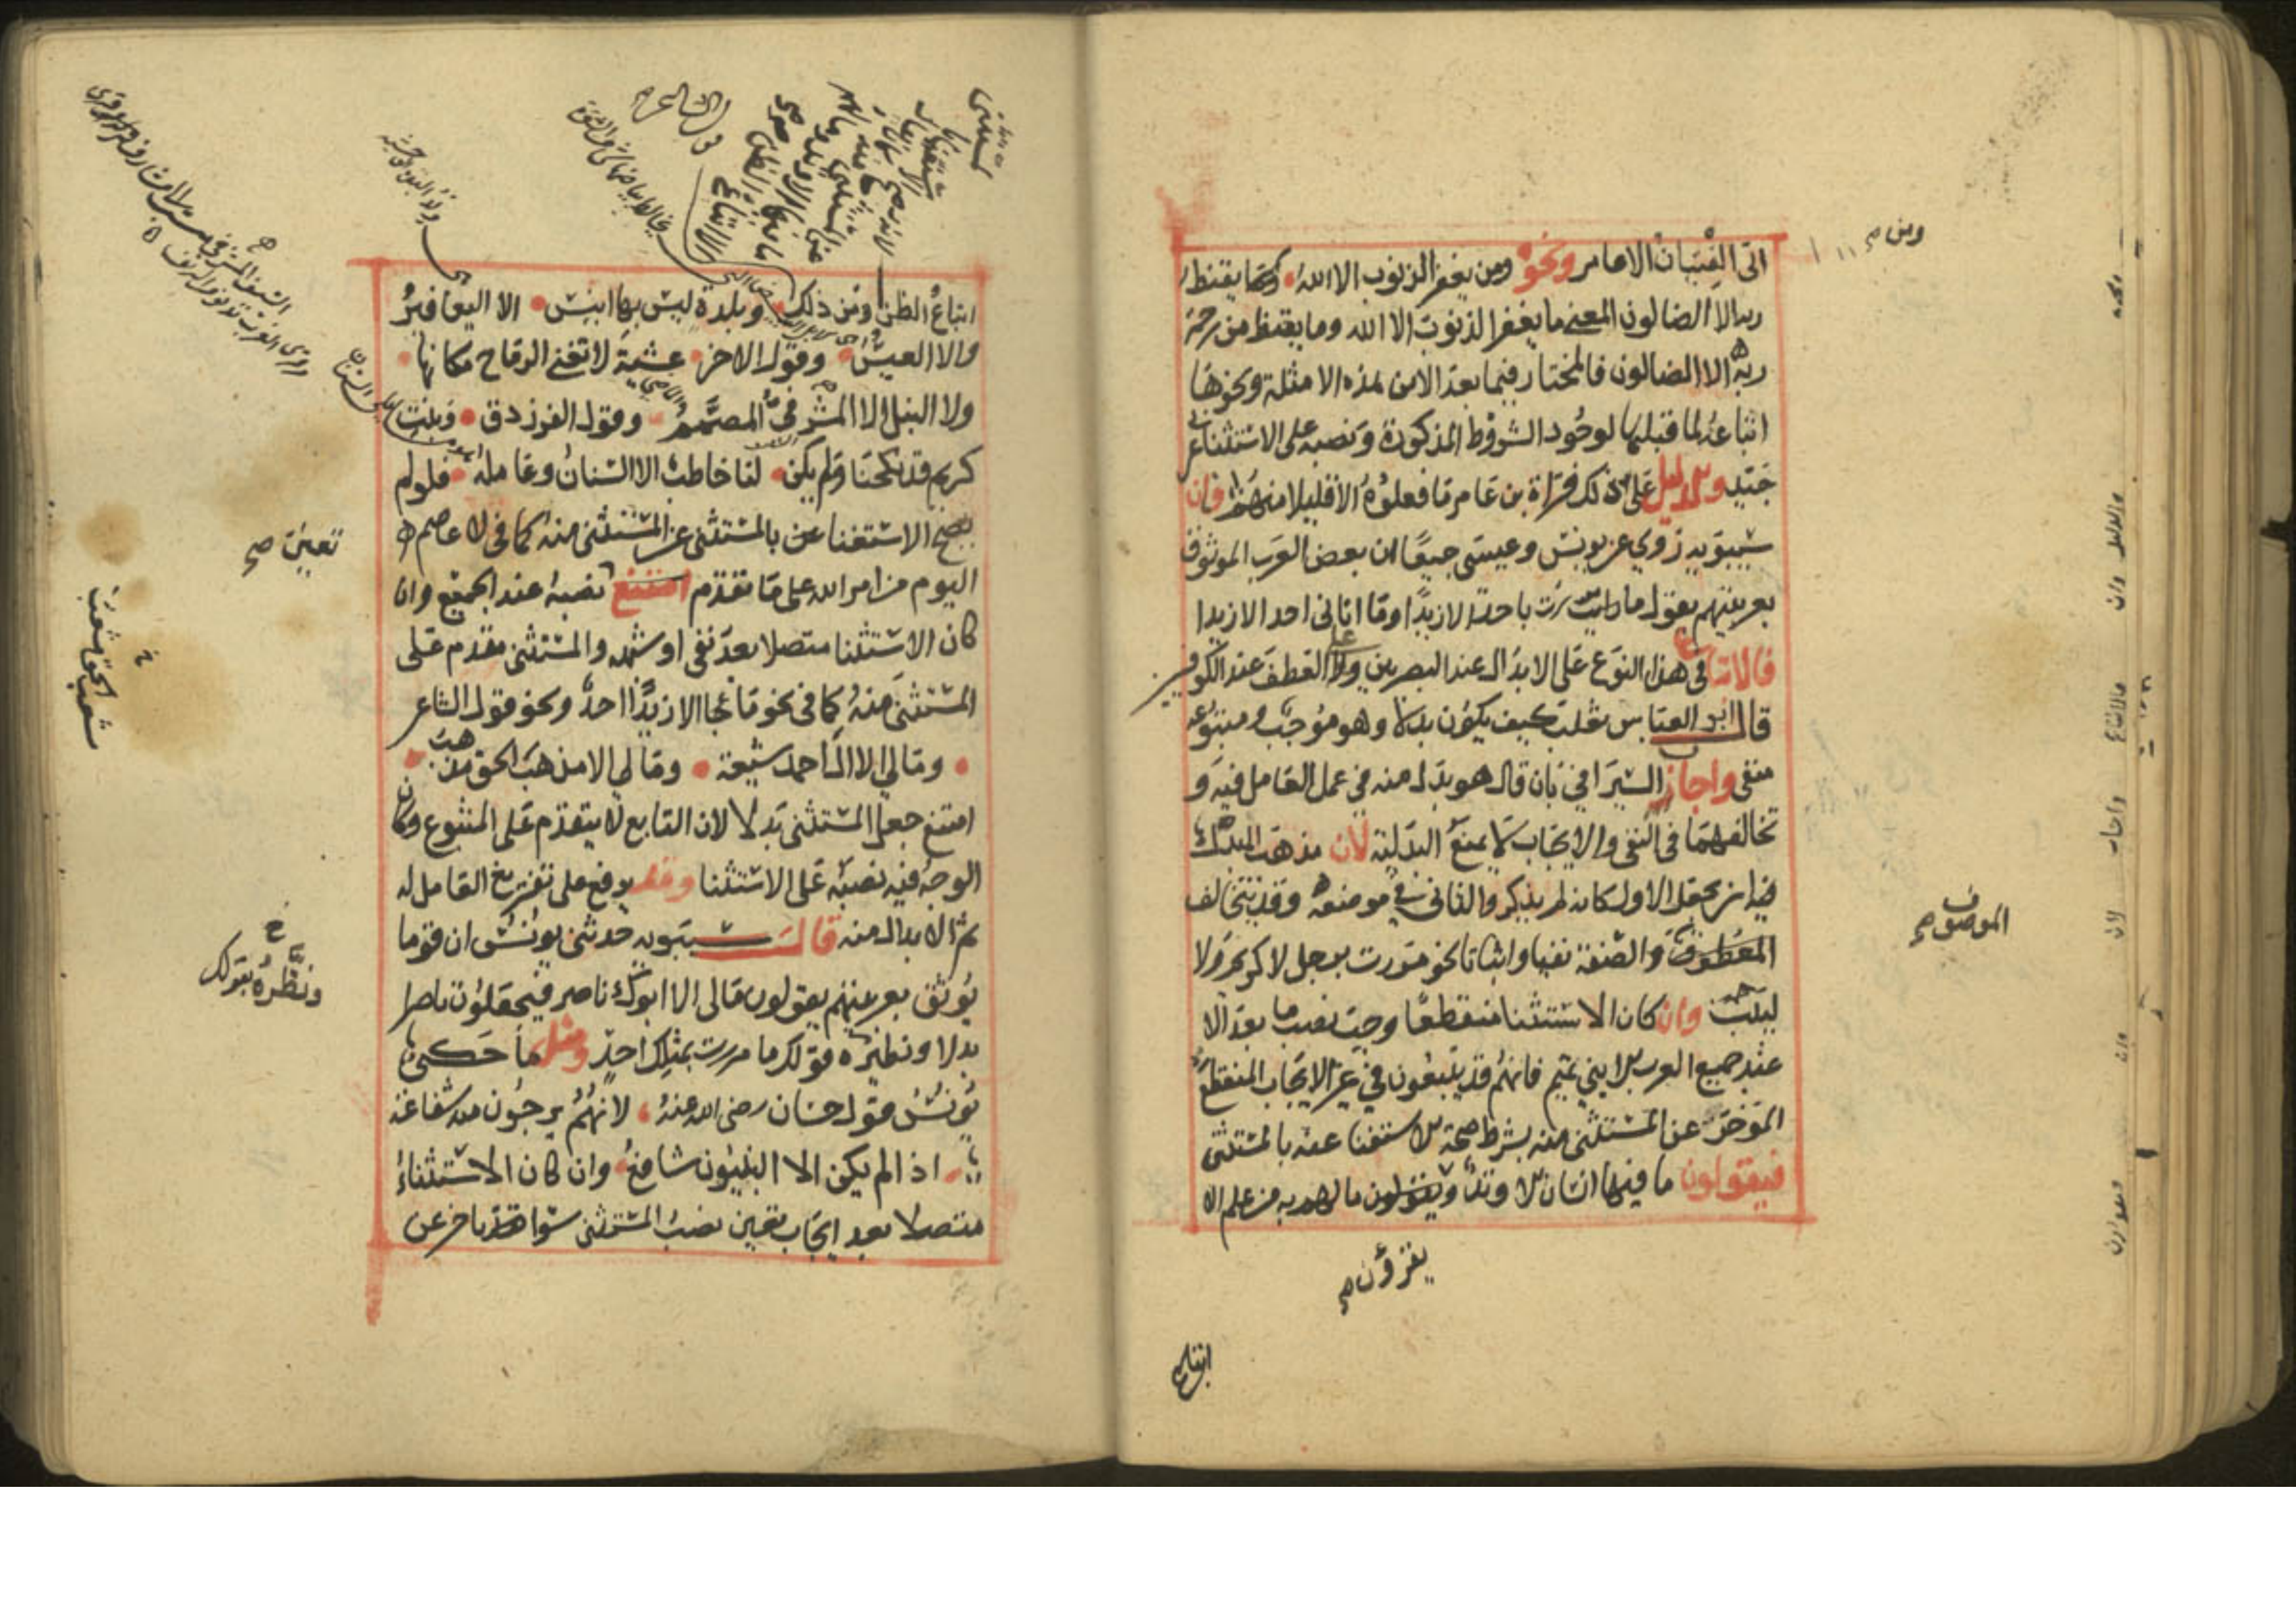 اتى الفتيان الا عامر ونحو ومن يغفر الذنوب الا الله وما يقنط
ربه الا الضالون المعنى ما يغفر الذنوب الا الله وما يقنط من رحمة
ربه الا الضالون فالمختار فيما بعد الا من هذه الامثلة ونحوها
اتباعه لما قبلها لوجود الشروط المذكورة ونصبه على الاستثناء عربي
جيد ويدل على ذلك قراة بن عامر ما فعلوه الا قليلا منهم فان
سيبويه روي عن يونس وعيسى جميعا ان بعض العرب الموثوق
بعربيتهم يقول ما مررت باحد الا زيدا وما اتاني احد الا زيدا
فالاتباع في هذا النوع على الابدال عند البصريين وعلى العطف عند الكوفيين
قال ابو العباس ثعلب كيف يكون بدلا وهو موجب ومتبوعه
منفي واجاز السيرافي بان قال هو بدل منه في عمل العامل فيه و
تخالفهما في النفي والايجاب لا يمنع البدلية لان مذهب البدل
فيه ان يجعل الاول كانه لم يذكر والثاني في موضعه وقد يتخالف
المعطوف والصفة نفيا واثباتا نحو مررت برجل لا كريم ولا
لبيب وان كان الاستثنا منقطعا وجب نصب ما بعد الا
عند جميع العرب الا بني تميم فانهم قد يتبعون في غير الايجاب المنقطع
المؤخر عن المستثنى منه بشرط صحة الاستغنا عنه بالمستثنى
فيقولون ما فيها انسان الا وتد ويقولون ما لهم به من علم الا
ومن صح
الموصوف صح
يقرؤن صح
اتباع
اتباع الظن ومن ذلك وبلدة ليس بها انيس الا اليعافير
والا العيس وقول الاخر عشية لا تغني الرماح مكانها
ولا النبل الا المشرفي المصمم وقول الفرزدق وبنت
كريم قد نكحنا ولم يكن لنا خاطب الا السنان وعامله فلو لم
يصح الاستغنا عن بالمستثنى عن المستثنى منه كما في لا عاصم
اليوم من امر الله على ما تقدم امتنع نصبه عند الجميع وان
كان الاستثنا متصلا بعد نفي او شبهه والمستثنى مقدم على
المستثنى منه كما في نحو ما نجا الا زيدا احد ونحو قول الشاعر
وما لي الا ال احمد شيعة وما لي الا مذهب الحق مذهب
امتنع جعل المستثنى بدلا لان التابع لا يتقدم على المتبوع وكان
الوجه فيه نصبه على الاستثنا وقد يرفع على تفريغ العامل له
ثم الابدال منه قال سيبويه حدثني يونس ان قوما
يوثق بعربيتهم يقولون مالي الا ابوك ناصر فيجعلون ناصرا
بدلا ونظيره قولك ما مررت بمثلك احد ومثل ما حكى
يونس قول حسان رضي الله عنه لانهم يرجون منه شفاعة
اذا لم يكن الا النبيون شافع وان كان الاستثناء
متصلا بعد ايجاب تعين نصب المستثنى سوا تاخر عن
تعين صح
مشعب الحق مشعب
خ
ونظره بقولك